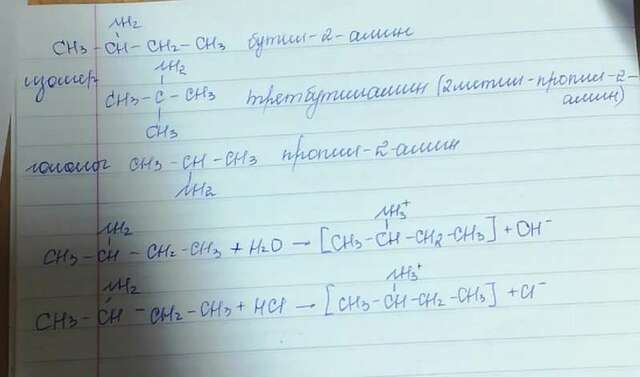 NH2
CH3 - CH - CH2 - CH3 бутил-2-амин
изомер NH2
CH3 - C - CH3 третбутиламин (2метил-пропил-2-
CH3 амин)
гомолог CH3 - CH - CH3 пропил-2-амин
NH2
NH2 NH3+
CH3 - CH - CH2 - CH3 + H2O → [CH3 - CH - CH2 - CH3] + OH-
NH2 NH3+
CH3 - CH - CH2 - CH3 + HCl → [CH3 - CH - CH2 - CH3] + Cl-